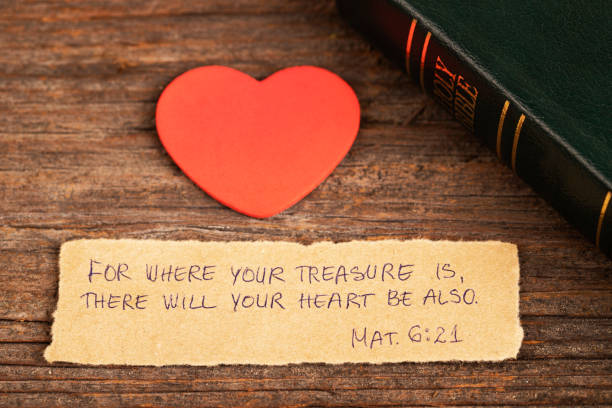 HOLY
BIBLE
FOR WHERE YOUR TREASURE IS,
THERE WILL YOUR HEART BE ALSO.
MAT. 6:21